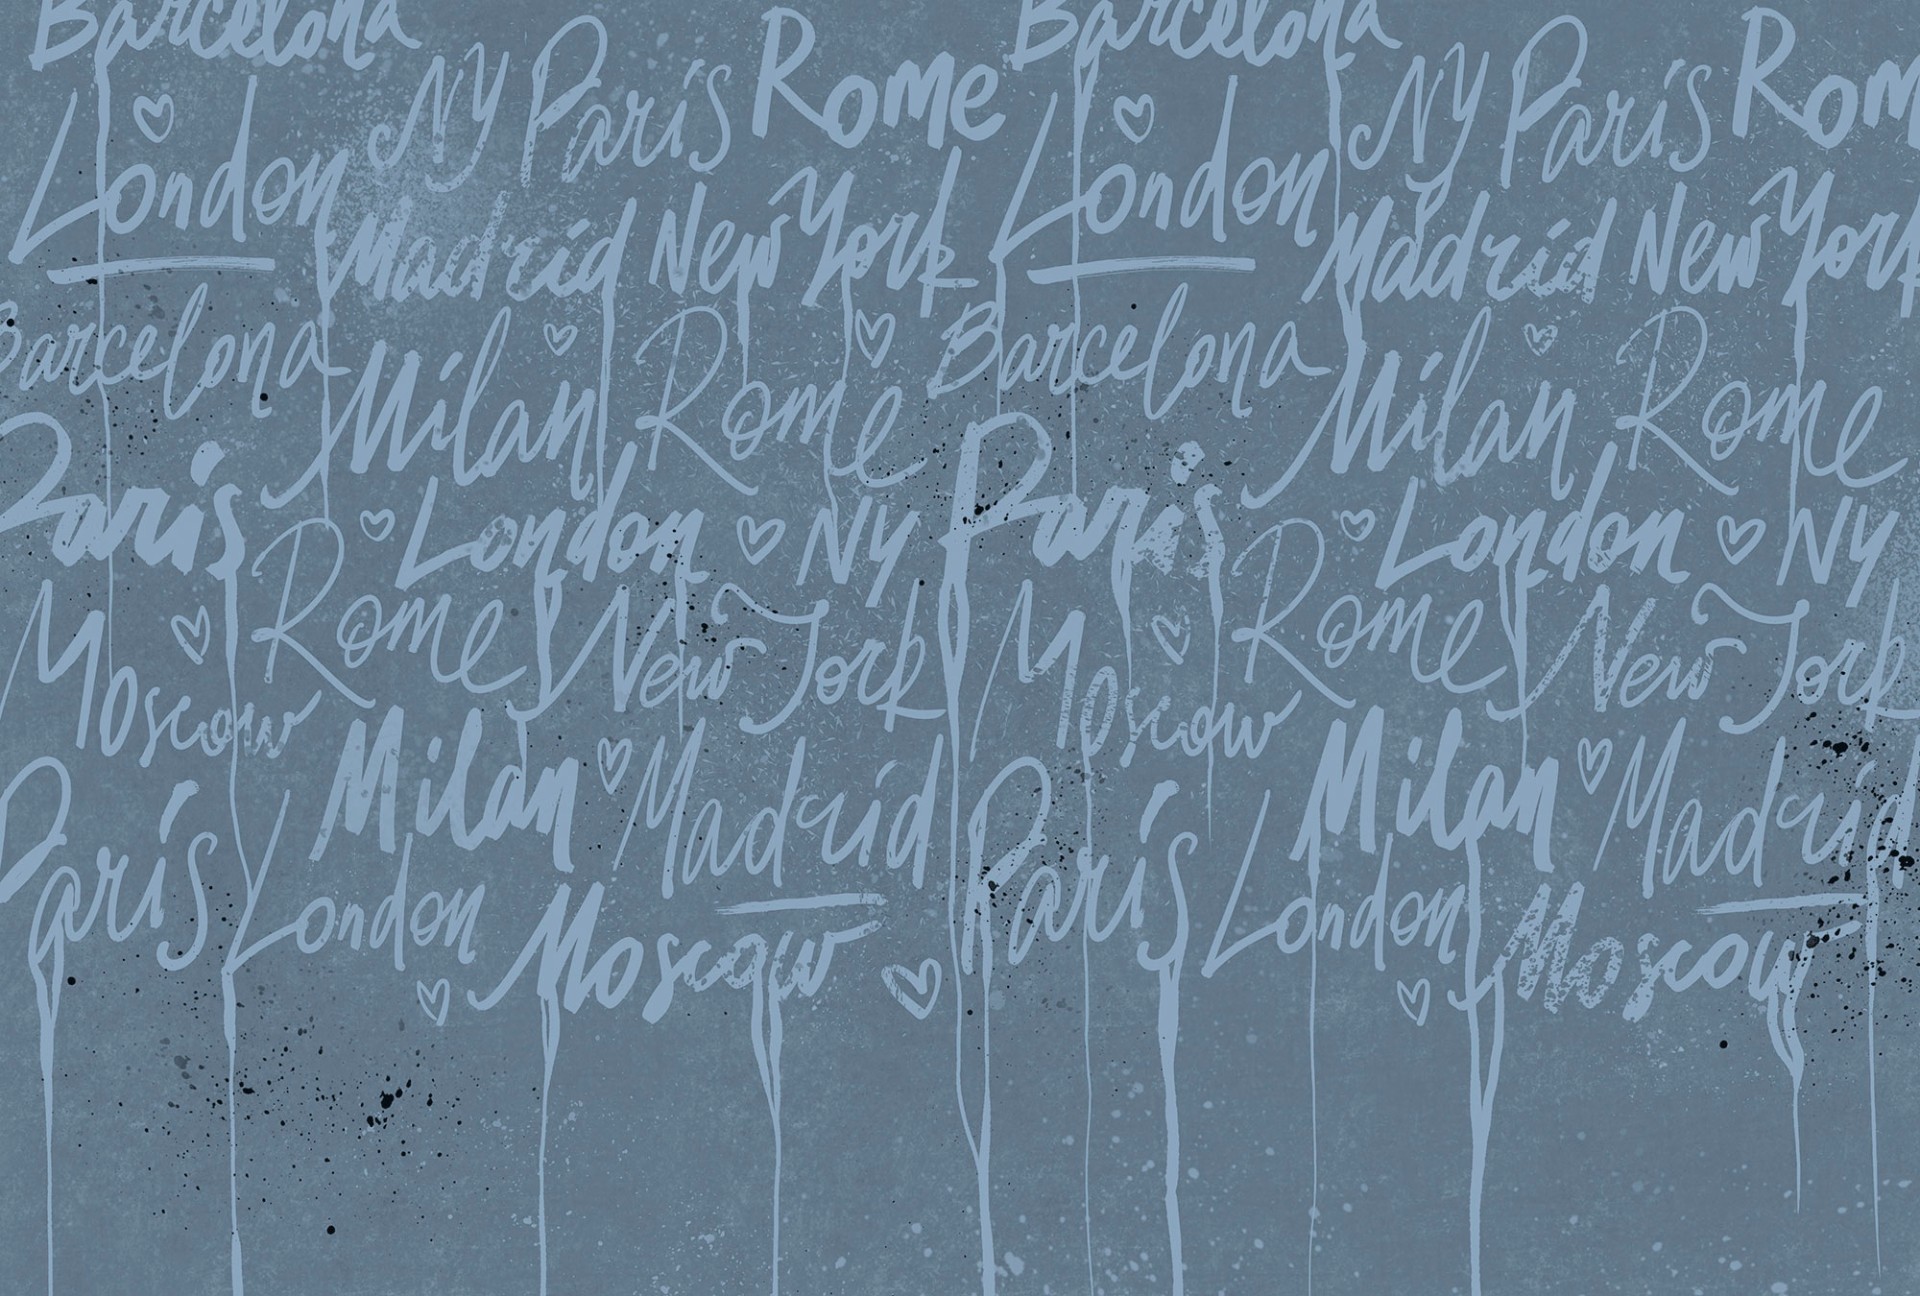 Barcelona Barcelona
NY Paris Rome NY Paris Rom
London London
Madrid New York Madrid New York
Barcelona Milan Rome Barcelona Milan Rome
Paris London NY Paris London NY
Moscow Rome New York Moscow Rome New York
Milan Madrid Milan Madrid
Paris London Paris London
Moscow Moscow